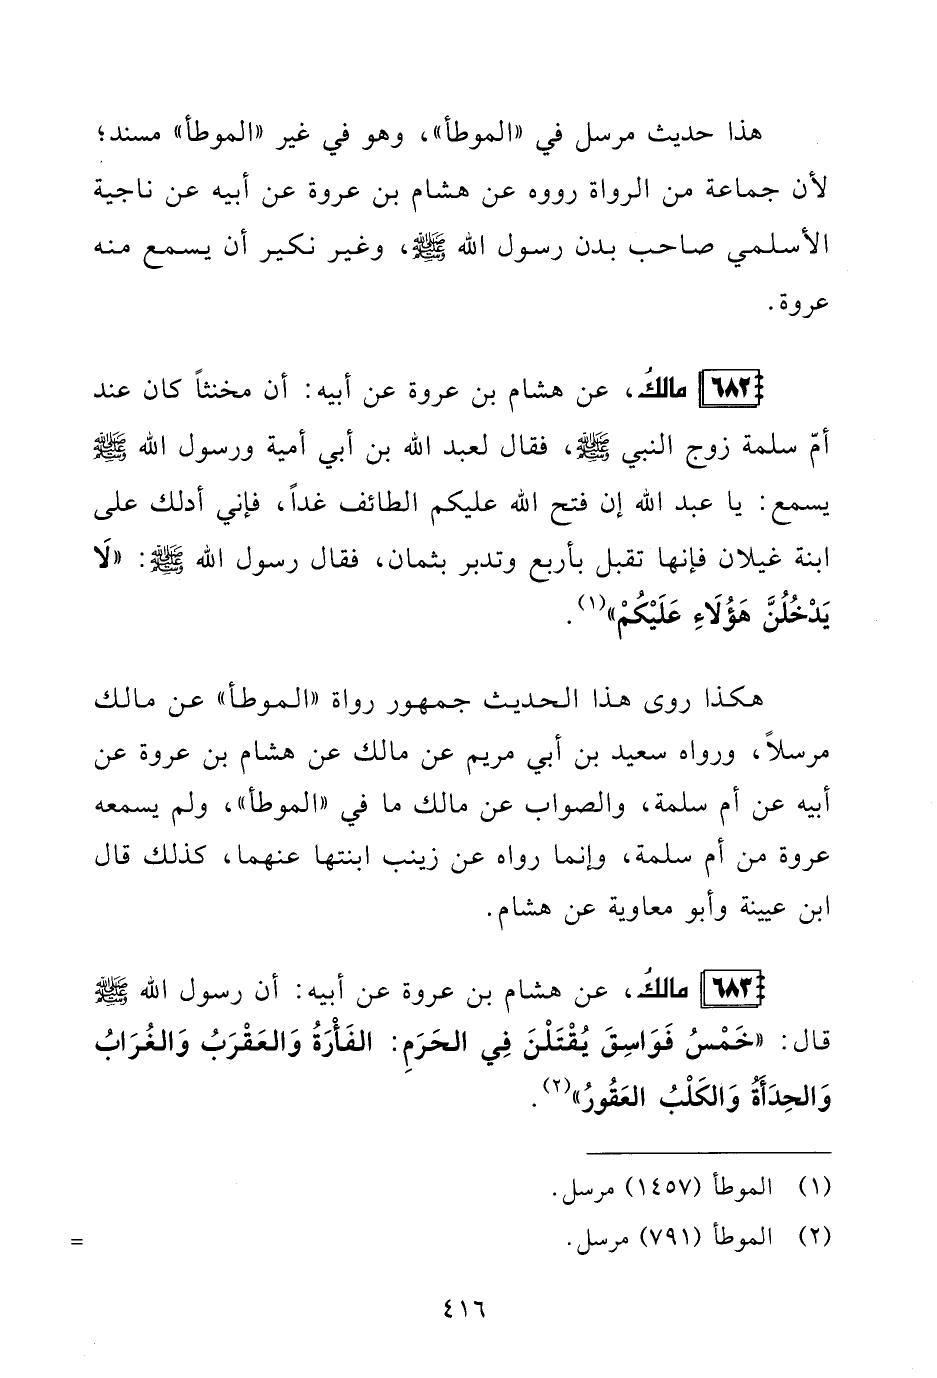 هذا حديث مرسل في «الموطأ»، وهو في غير «الموطأ» مسند؛
لأن جماعة من الرواة رووه عن هشام بن عروة عن أبيه عن ناجية
الأسلمي صاحب بدن رسول الله ﷺ، وغير نكير أن يسمع منه
عروة.
٦٨٢ مالكُ، عن هشام بن عروة عن أبيه: أن مخنثاً كان عند
أمّ سلمة زوج النبي ﷺ، فقال لعبد الله بن أبي أمية ورسول الله ﷺ
يسمع: يا عبد الله إن فتح الله عليكم الطائف غداً، فإني أدلك على
ابنة غيلان فإنها تقبل بأربع وتدبر بثمان، فقال رسول الله ﷺ: «لَا
يَدْخُلُنَّ هَؤُلَاءِ عَلَيْكُمْ»(١).
هكذا روى هذا الحديث جمهور رواة «الموطأ» عن مالك
مرسلاً، ورواه سعيد بن أبي مريم عن مالك عن هشام بن عروة عن
أبيه عن أم سلمة، والصواب عن مالك ما في «الموطأ»، ولم يسمعه
عروة من أم سلمة، وإنما رواه عن زينب ابنتها عنهما، كذلك قال
ابن عيينة وأبو معاوية عن هشام.
٦٨٣ مالكُ، عن هشام بن عروة عن أبيه: أن رسول الله ﷺ
قال: «خَمْسُ فَوَاسِقَ يُقْتَلْنَ فِي الحَرَمِ: الفَأْرَةُ وَالعَقْرَبُ وَالغُرَابُ
وَالحِدَأَةُ وَالكَلْبُ العَقُورُ»(٢).
(١) الموطأ (١٤٥٧) مرسل.
(٢) الموطأ (٧٩١) مرسل. =
٤١٦